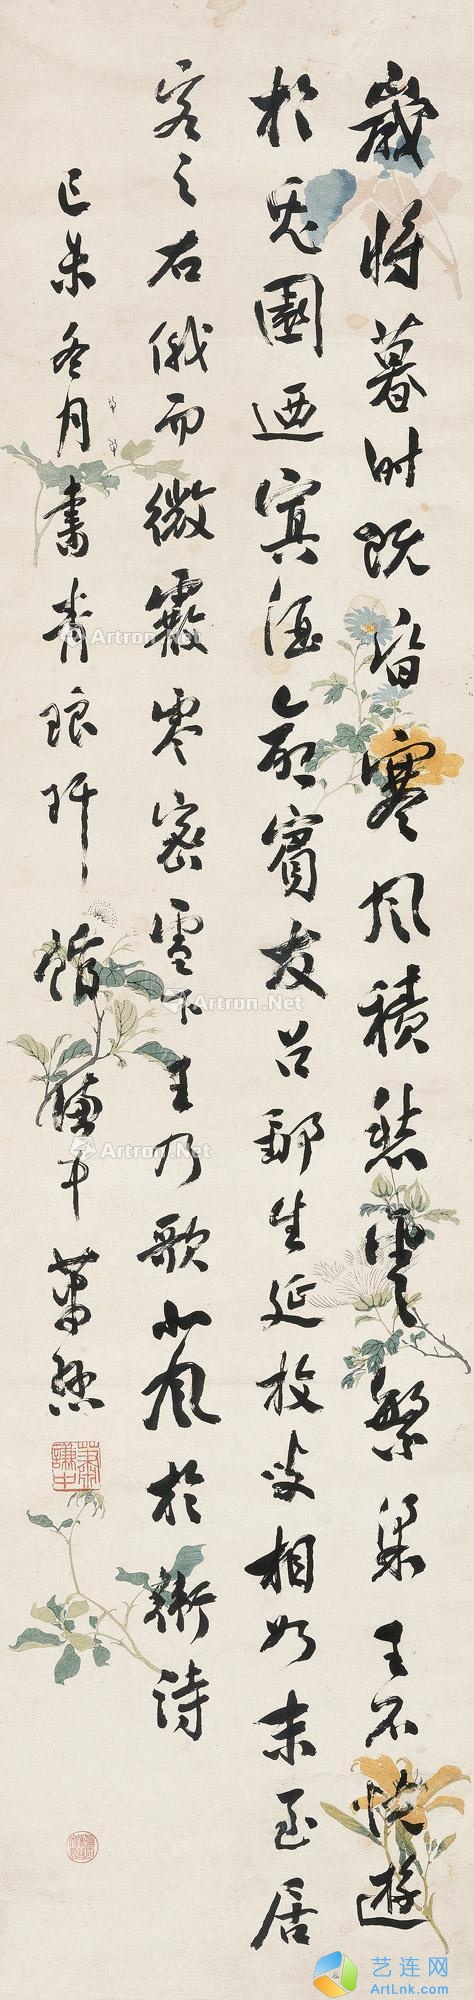 歲將暮時既昏寒風積愁雲繁梁王不悅遊
於兔園迺寘酒命賓友召鄒生延枚叟相如末至居
客之右俄而微霰零密雪下王乃歌北風於衛詩
己未冬月書青琅玕館謙中蕭愻
蕭謙中
Artron.Net
Artron.Net
Artron.Net
Artron.Net
Artron.Net
艺连网
ArtLnk.com